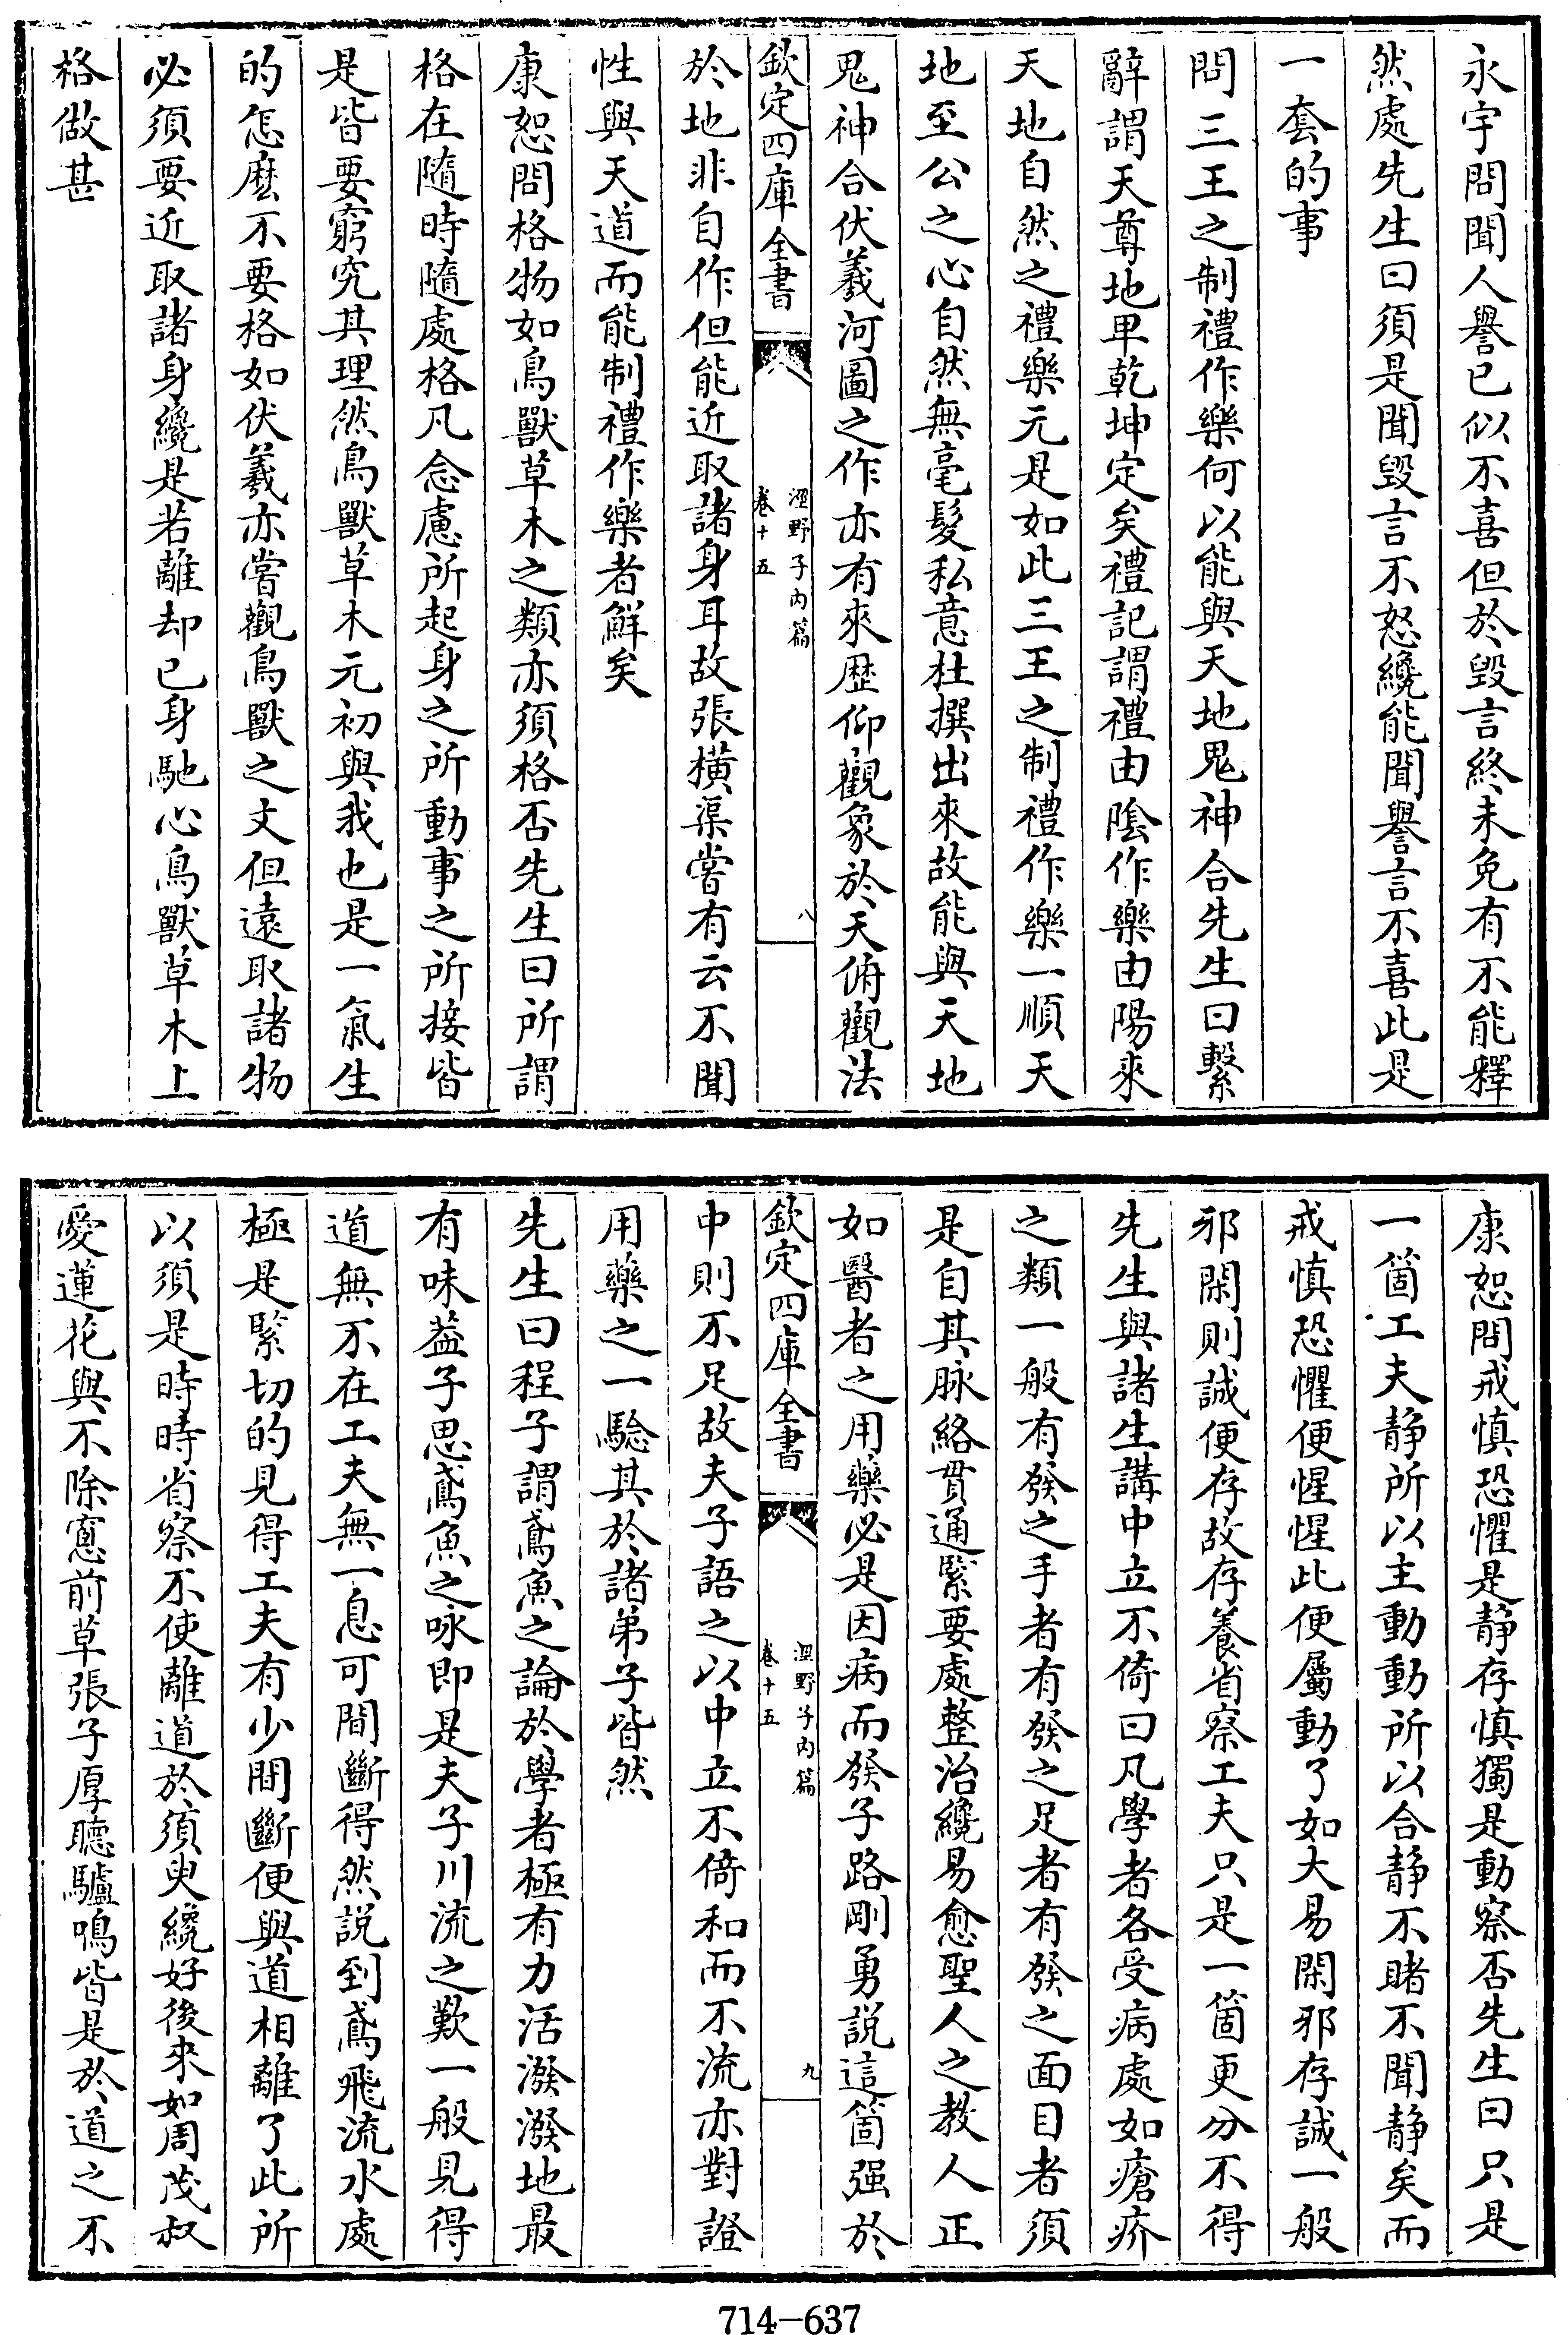 永宇問聞人譽已似不喜但於毀言終未免有不能釋
然處先生曰須是聞毀言不怒纔能聞譽言不喜此是
一套的事
問三王之制禮作樂何以能與天地鬼神合先生曰繫
辭謂天尊地卑乾坤定矣禮記謂禮由陰作樂由陽來
天地自然之禮樂元是如此三王之制禮作樂一順天
地至公之心自然無毫髮私意杜撰出來故能與天地
鬼神合伏羲河圖之作亦有來歴仰觀象於天俯觀法
欽定四庫全書
涇野子內篇
卷十五
八
於地非自作但能近取諸身耳故張橫渠嘗有云不聞
性與天道而能制禮作樂者鮮矣
康恕問格物如鳥獸草木之類亦須格否先生曰所謂
格在隨時隨處格凡念慮所起身之所動事之所接皆
是皆要窮究其理然鳥獸草木元初與我也是一氣生
的怎麽不要格如伏羲亦嘗觀鳥獸之文但遠取諸物
必須要近取諸身纔是若離却已身馳心鳥獸草木上
格做甚
康恕問戒慎恐懼是静存慎獨是動察否先生曰只是
一箇工夫静所以主動動所以合静不睹不聞静矣而
戒慎恐懼便惺惺此便屬動了如大易閑邪存誠一般
邪閑則誠便存故存養省察工夫只是一箇更分不得
先生與諸生講中立不倚曰凡學者各受病處如瘡疥
之類一般有發之手者有發之足者有發之面目者須
是自其脉絡貫通緊要處整治纔易愈聖人之教人正
如醫者之用藥必是因病而發子路剛勇說這箇强於
欽定四庫全書
涇野子內篇
卷十五
九
中則不足故夫子語之以中立不倚和而不流亦對證
用藥之一驗其於諸弟子皆然
先生曰程子謂鳶魚之論於學者極有力活潑潑地最
有味葢子思鳶魚之咏即是夫子川流之歎一般見得
道無不在工夫無一息可間斷得然説到鳶飛流水處
極是緊切的見得工夫有少間斷便與道相離了此所
以須是時時省察不使離道於須臾纔好後來如周茂叔
愛蓮花與不除窻前草張子厚聽驢鳴皆是於道之不
714-637